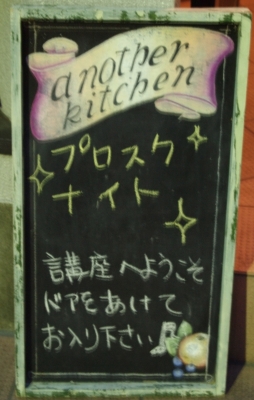 another
kitchen
プロスク
ナイト
講座へようこそ
ドアをあけて
お入り下さい